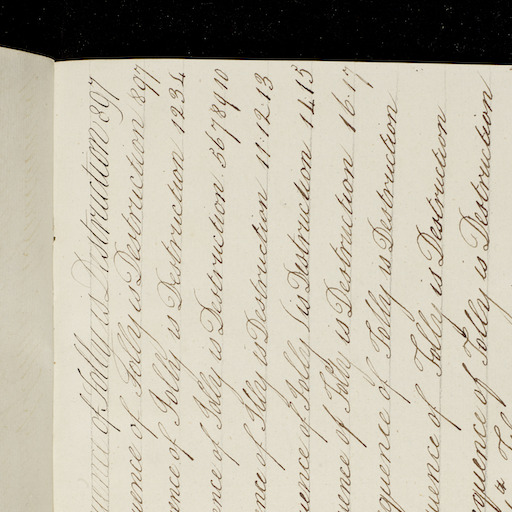 uence of folly is Destruction 897
uence of Folly is Destruction 897
ence of Folly is Destruction 1234
ence of Folly is Destruction 5678910
nce of Flly is Destruction 11 12 13
uence of Folly is Destruction 14 15
uence of Folly is Destruction 16 17
quence of Folly is Destruction
uence of Folly is Destruction
quence of Folly is Destruction